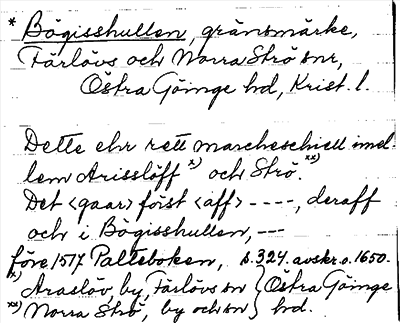 * Bögisshullen, gränsmärke,
Färlövs och Norra Strö snr,
Östra Göinge hd, Krist. l.
Dette ehr rett marcheschiell imel-
lem Arisslöff x) och Strö. xx)
Det <gaar> först <aff> ----, deraff
och i Bögisshullen, ---
före 1577 Palteboken, s. 327. avskr. o. 1650.
x) Araslöv, by, Färlövs sn } Östra Göinge
xx) Norra Strö, by och sn } hd.